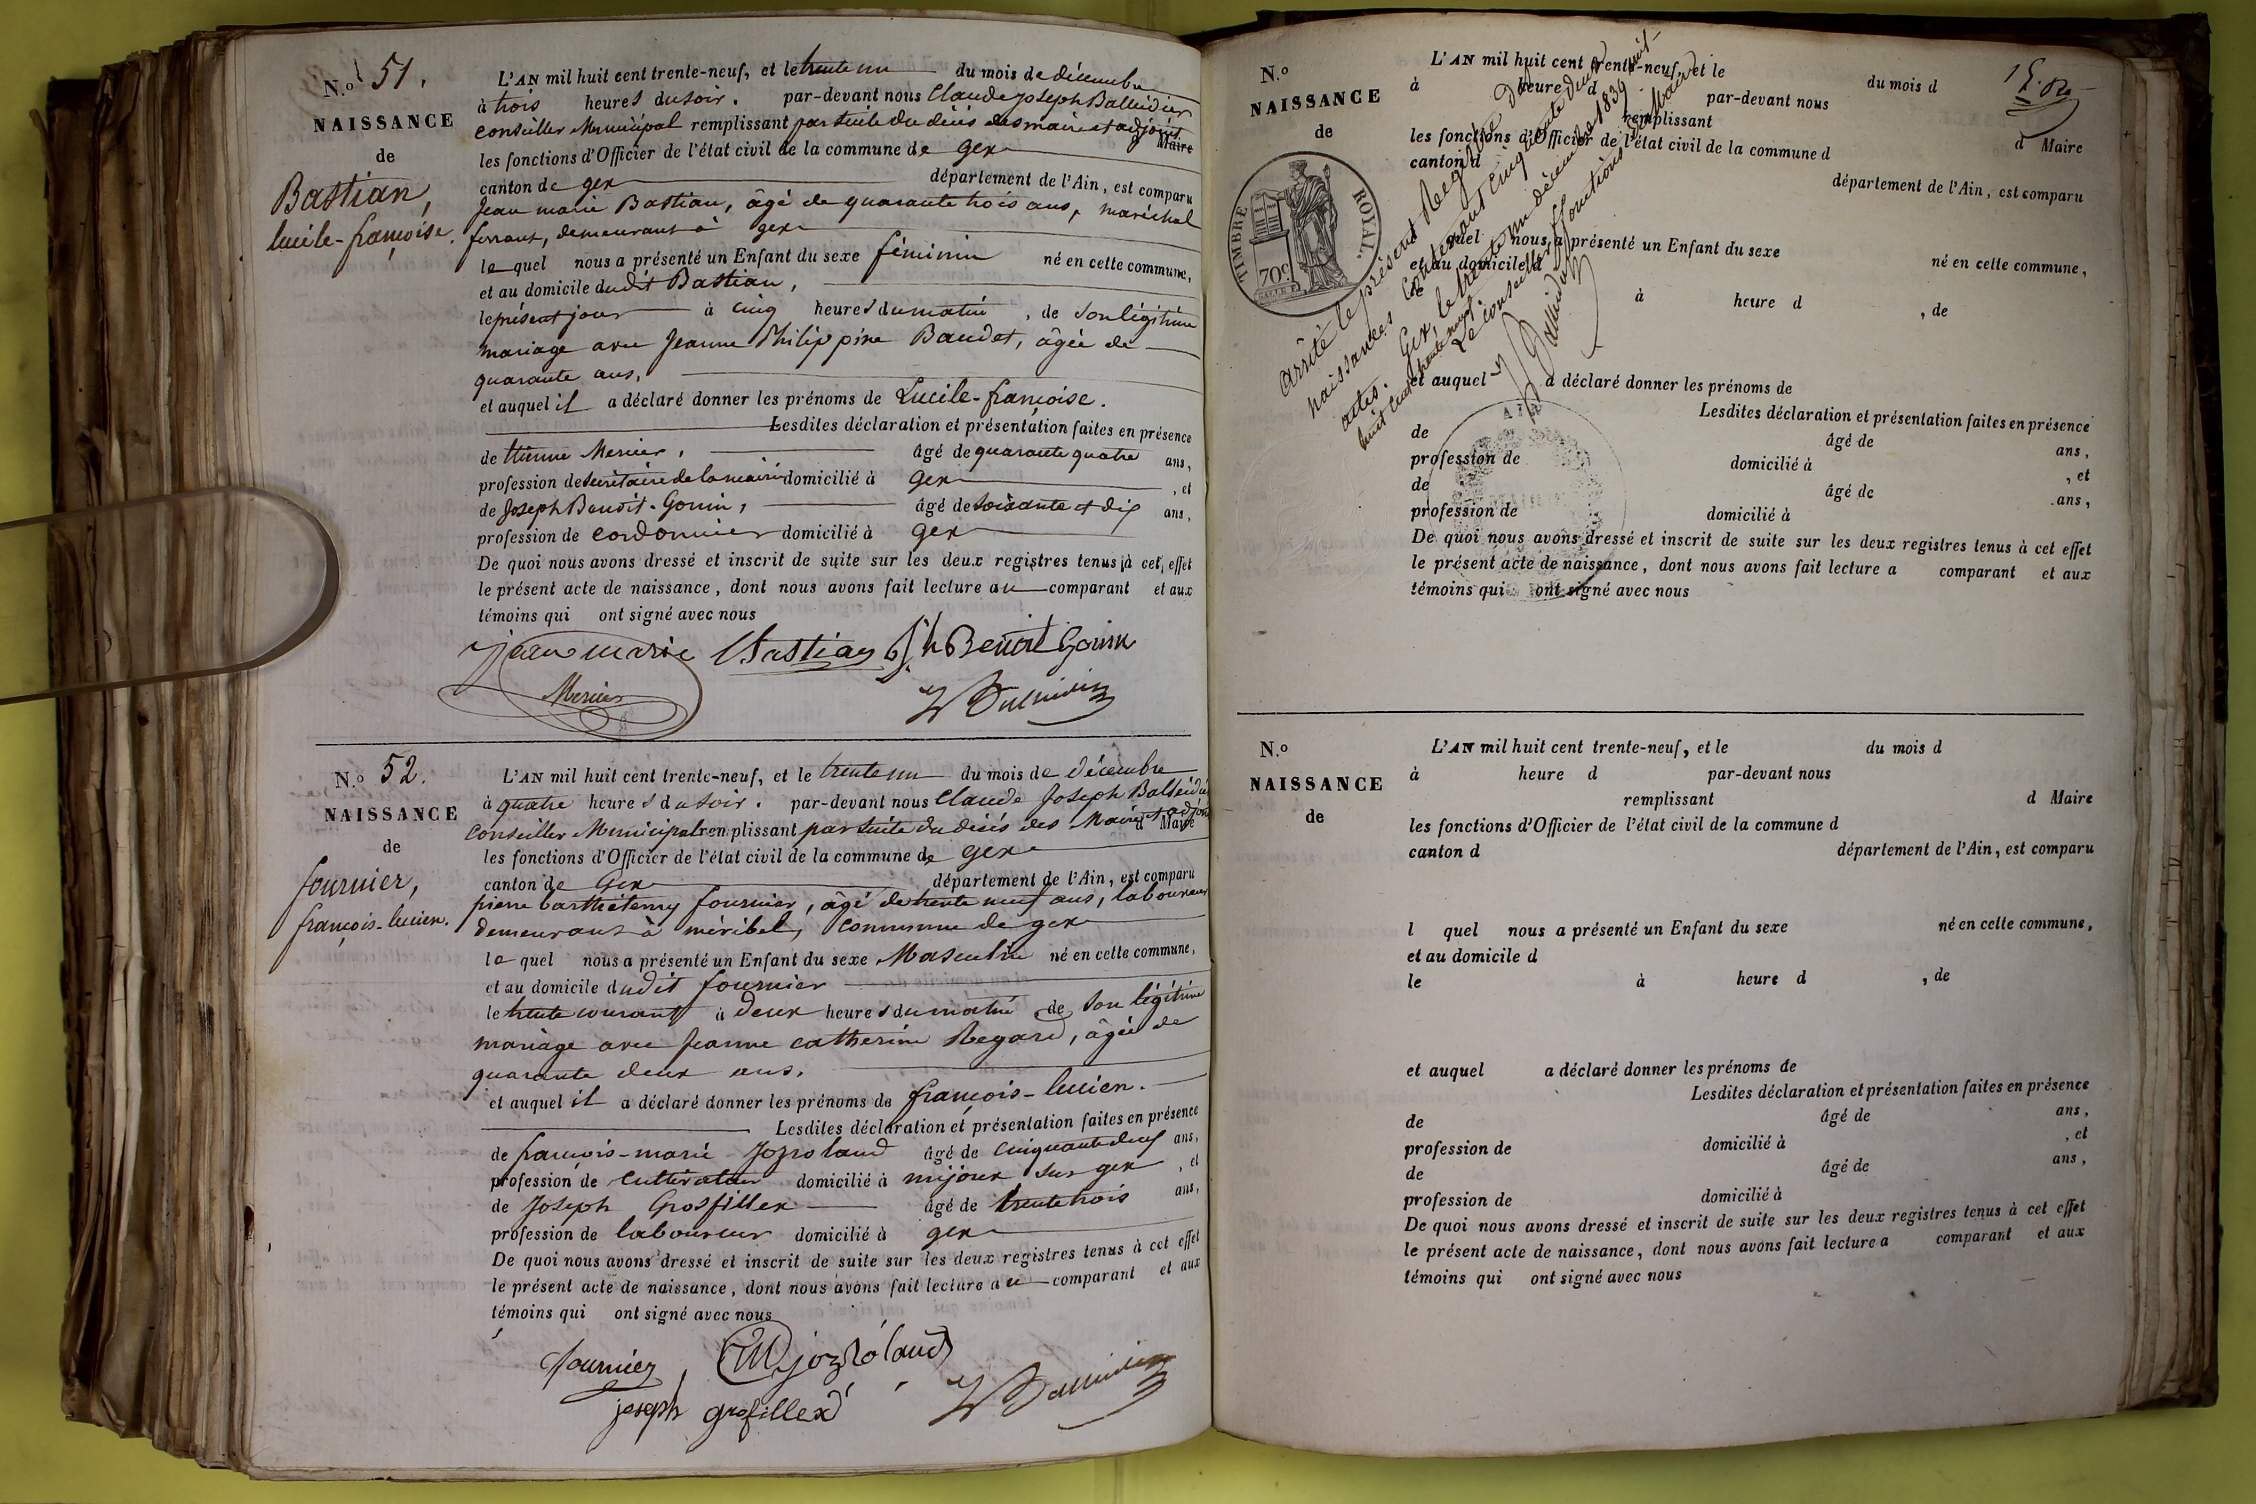 N.o 51.
NAISSANCE
de
Bastian,
lucile-françoise.
L'AN mil huit cent trente-neuf, et le trente un du mois de décembre
à trois heures du soir. par-devant nous Claude Joseph Balleidier
conseiller Municipal remplissant par suite du décès des maire et adjoint
d Maire
les fonctions d'Officier de l'état civil de la commune de gex
canton de gex département de l'Ain, est comparu
Jean marie Bastian, âgé de quarante trois ans, maréchal
ferrant, demeurant à gex
le quel nous a présenté un Enfant du sexe féminin né en cette commune,
et au domicile dudit Bastian,
le présent jour à cinq heures du matin, de son légitime
mariage avec Jeanne Philippine Baudet, âgée de
quarante ans,
et auquel il a déclaré donner les prénoms de Lucile-françoise.
Lesdites déclaration et présentation faites en présence
de Etienne Mercier, âgé de quarante quatre ans,
profession de secrétaire de la mairie domicilié à gex , et
de Joseph Benoit-Gonin, âgé de soixante et dix ans,
profession de cordonnier domicilié à gex
De quoi nous avons dressé et inscrit de suite sur les deux registres tenus à cet effet
le présent acte de naissance, dont nous avons fait lecture au comparant et aux
témoins qui ont signé avec nous
Jean marie Bastian Jh Benoit Gonin
Mercier
Balleidier
N.o 52.
NAISSANCE
de
fournier,
françois-lucien.
L'AN mil huit cent trente-neuf, et le trente un du mois de décembre
à quatre heures du soir. par-devant nous Claude Joseph Balleidier
conseiller Municipal remplissant par suite du décès des Maire et adjoint
d Maire
les fonctions d'Officier de l'état civil de la commune de gex
canton de Gex département de l'Ain, est comparu
pierre barthélemy fournier, âgé de trente neuf ans, laboureur
demeurant à méribel, commune de gex
le quel nous a présenté un Enfant du sexe Masculin né en cette commune,
et au domicile dudit fournier
le trente courant à deux heures du matin de son légitime
mariage avec Jeanne catherine Regard, âgée de
quarante deux ans.
et auquel il a déclaré donner les prénoms de françois-lucien.
Lesdites déclaration et présentation faites en présence
de françois-marie Jozroland âgé de cinquante deux ans,
profession de cultivateur domicilié à mijoux sur gex , et
de Joseph Grosfillex âgé de trente trois ans,
profession de laboureur domicilié à gex
De quoi nous avons dressé et inscrit de suite sur les deux registres tenus à cet effet
le présent acte de naissance, dont nous avons fait lecture au comparant et aux
témoins qui ont signé avec nous
fournier, jozroland
joseph grosfillex Balleidier
N.o
NAISSANCE
de
TIMBRE ROYAL.
70c
L'AN mil huit cent trente-neuf, et le du mois d
à heure d par-devant nous
remplissant
d Maire
les fonctions d'Officier de l'état civil de la commune d
canton d
département de l'Ain, est comparu
quel nous a présenté un Enfant du sexe né en cette commune,
et au domicile d
le à heure d , de
et auquel a déclaré donner les prénoms de
Lesdites déclaration et présentation faites en présence
de âgé de ans,
profession de domicilié à , et
de âgé de ans,
profession de domicilié à
De quoi nous avons dressé et inscrit de suite sur les deux registres tenus à cet effet
le présent acte de naissance, dont nous avons fait lecture a comparant et aux
témoins qui ont signé avec nous
arrêté le présent Registre De
naissances contenant cinquante deux
actes. Gex, le trente un décembre 1839 mil
huit cent trente neuf.
Le conseiller ff fonctions de Maire
Balleidier
N.o
NAISSANCE
de
L'AN mil huit cent trente-neuf, et le du mois d
à heure d par-devant nous
remplissant d Maire
les fonctions d'Officier de l'état civil de la commune d
canton d département de l'Ain, est comparu
l quel nous a présenté un Enfant du sexe né en cette commune,
et au domicile d
le à heure d , de
et auquel a déclaré donner les prénoms de
Lesdites déclaration et présentation faites en présence
de âgé de ans,
profession de domicilié à , et
de âgé de ans,
profession de domicilié à
De quoi nous avons dressé et inscrit de suite sur les deux registres tenus à cet effet
le présent acte de naissance, dont nous avons fait lecture a comparant et aux
témoins qui ont signé avec nous